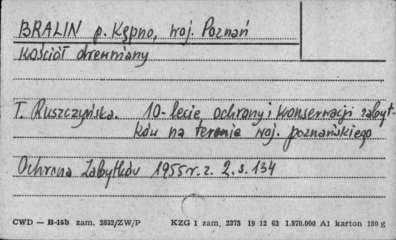 BRALIN p. Kępno, woj. Poznań
kościół drewniany
T. Ruszczyńska. 10-lecie ochrony i konserwacji zabyt-
ków na terenie woj. poznańskiego
Ochrona Zabytków 1955 r. z. 2. s. 134
CWD — B-15b zam. 2832/ZW/P KZG 1 zam. 2375 19 12 62 1.970.000 A1 karton 180 g